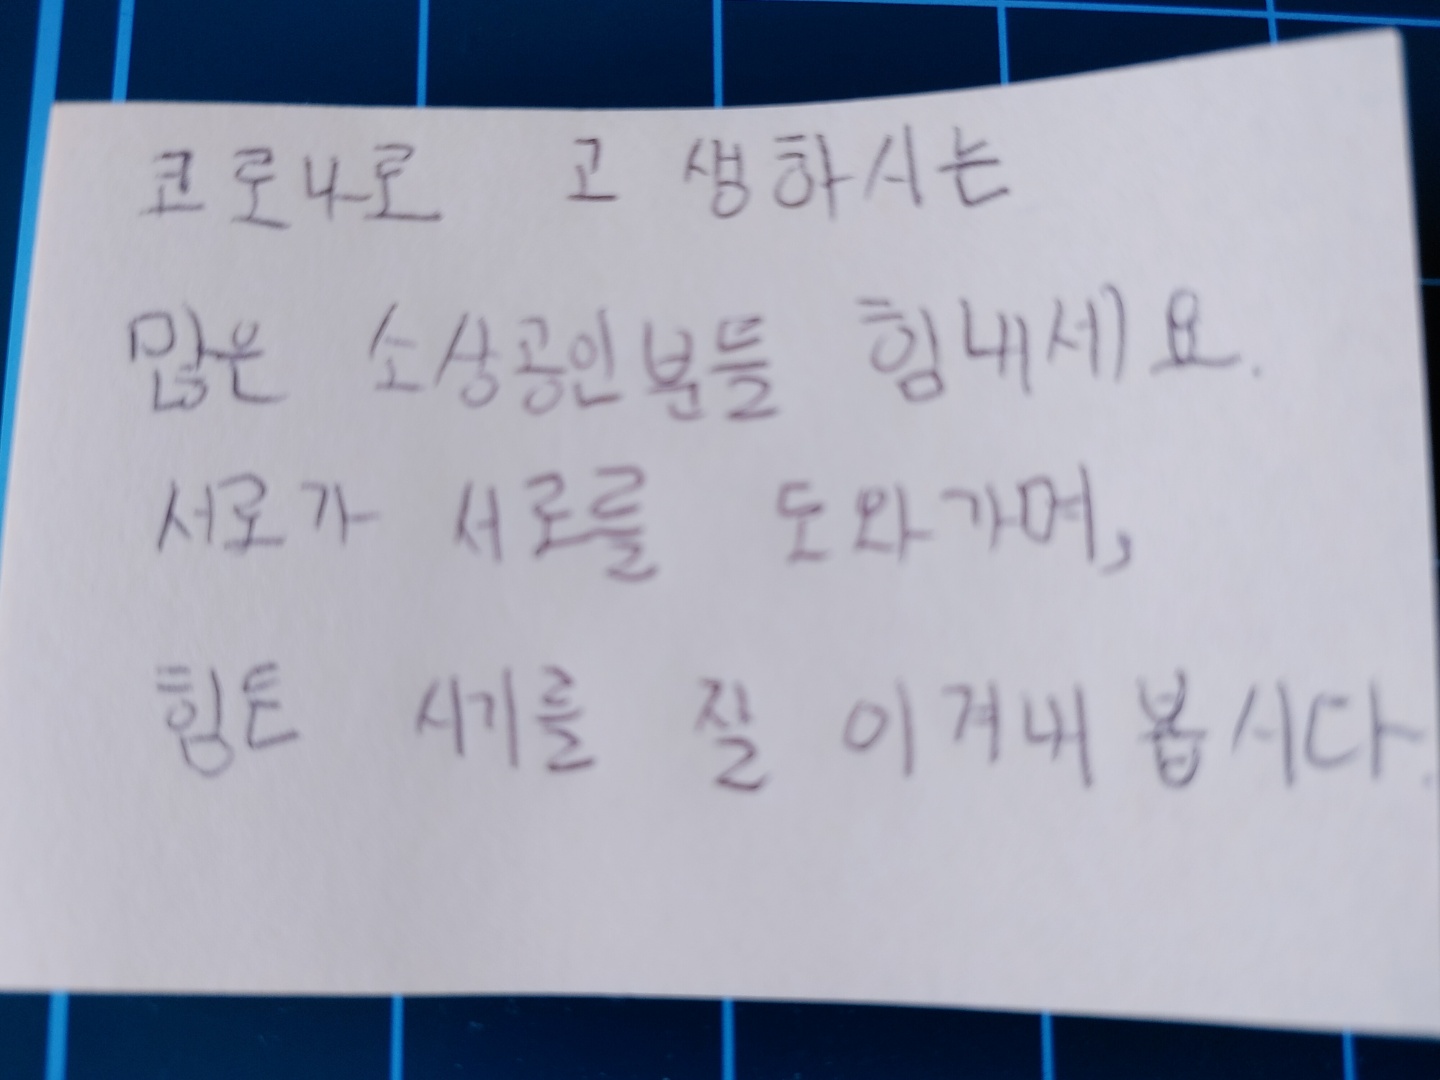 코로나로 고생하시는
많은 소상공인분들 힘내세요.
서로가 서로를 도와가며,
힘든 시기를 잘 이겨내 봅시다.